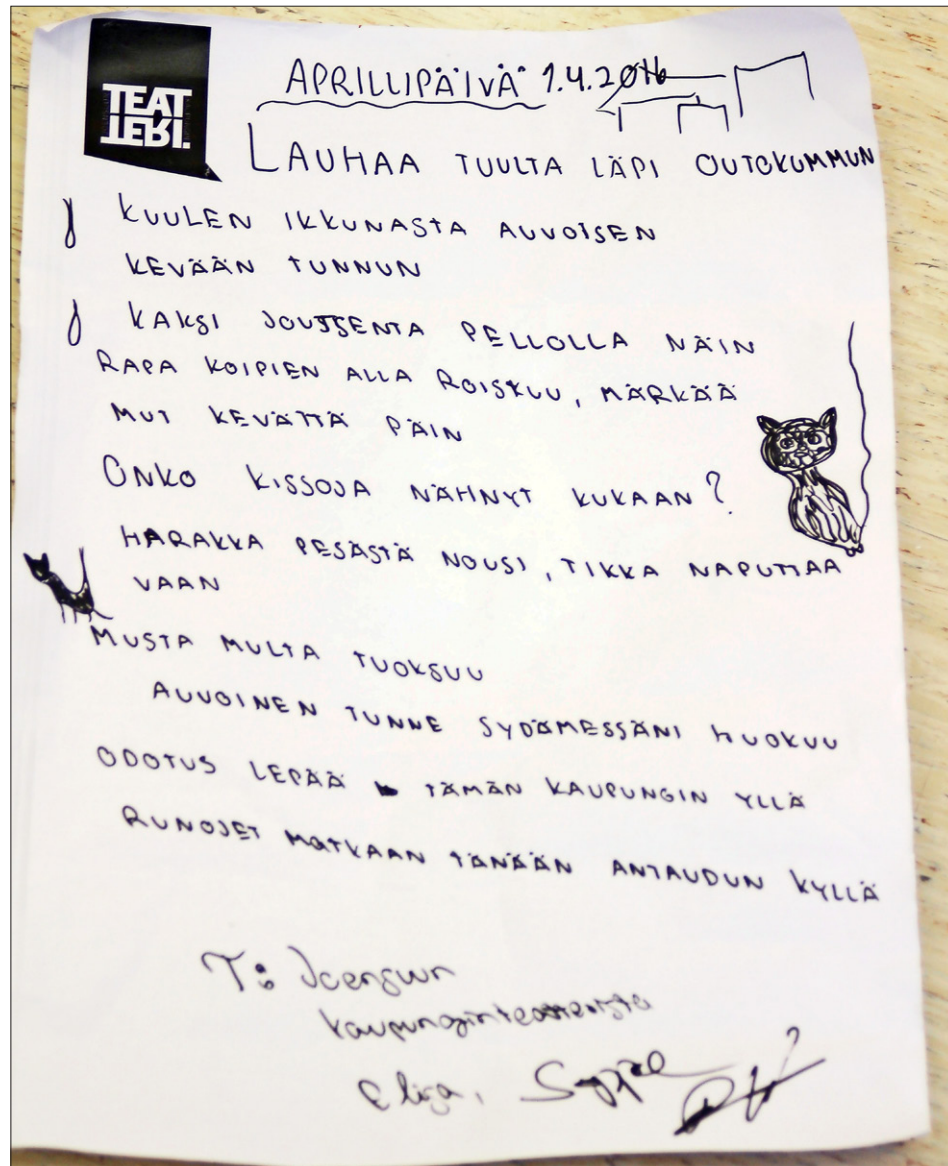 TEAT
TERI.
APRILLIPÄIVÄ 1.4.2016
LAUHAA TUULTA LÄPI OUTOKUMMUN
KUULEN IKKUNASTA AUVOISEN
KEVÄÄN TUNNUN
KAKSI JOUTSENTA PELLOLLA NÄIN
RAPA KOIPIEN ALLA ROISKUU, MÄRKÄÄ
MUT KEVÄTTÄ PÄIN
ONKO KISSOJA NÄHNYT KUKAAN?
HARAKKA PESÄSTÄ NOUSI, TIKKA NAPUTTAA
VAAN
MUSTA MULTA TUOKSUU
AUVOINEN TUNNE SYDÄMESSÄNI HUOKUU
ODOTUS LEPÄÄ TÄMÄN KAUPUNGIN YLLÄ
RUNOJET MATKAAN TÄNÄÄN ANTAUDUN KYLLÄ
T: Joensuun
kaupunginteatterista
Eliisa,